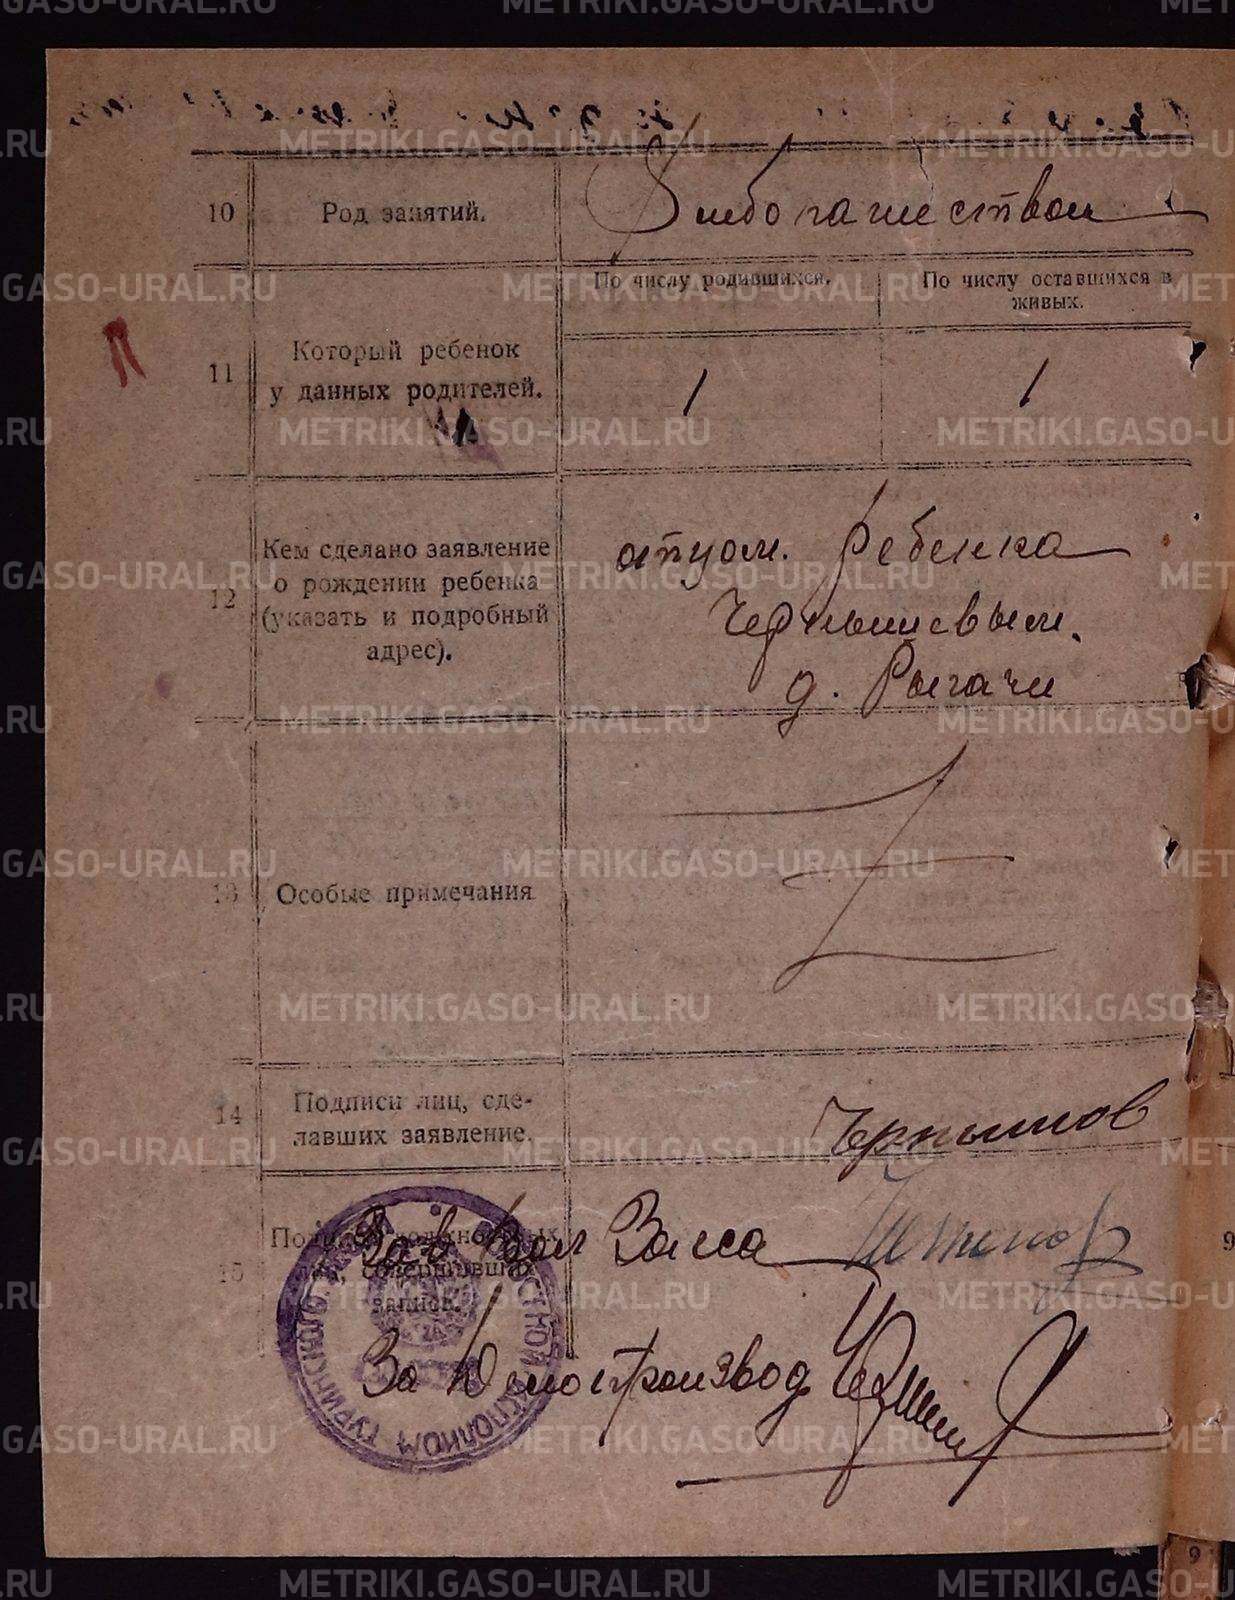 10 Род занятий. Хлебопашеством
По числу родившихся. По числу оставшихся в
живых.
11 Который ребенок
у данных родителей. 1 1
12 Кем сделано заявление
о рождении ребенка
(указать и подробный
адрес).
отцом. Ребенка
Чернышевым.
д. Рычачи
13 Особые примечания
14 Подписи лиц, сде-
лавших заявление.
15 Подписи должностных
лиц, совершивших
запись.
Зав Вол Загса
За Делопроизвод
METRIKI.GASO-URAL.RU
9